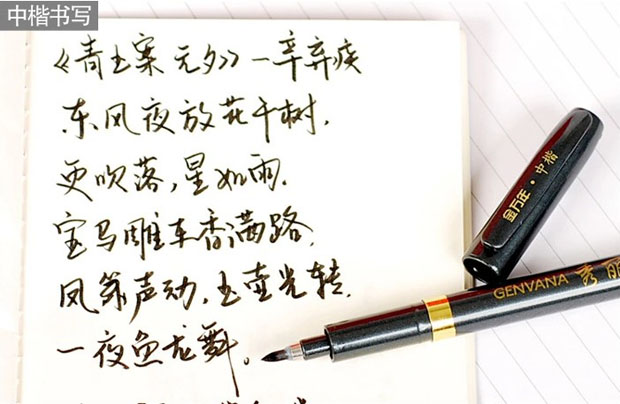 中楷书写
《青玉案 元夕》—辛弃疾
东风夜放花千树，
更吹落，星如雨。
宝马雕车香满路。
凤箫声动，玉壶光转，
一夜鱼龙舞。
金万年·中楷
GENVANA 秀丽